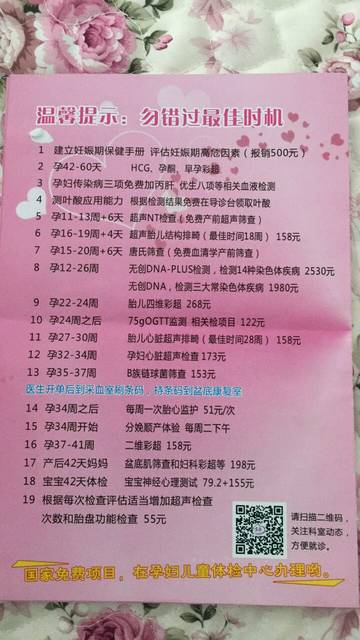 温馨提示：勿错过最佳时机
1 建立妊娠期保健手册 评估妊娠期高危因素（报销500元）
2 孕42-60天 HCG、孕酮、早孕彩超
3 孕妇传染病三项免费加丙肝，优生八项等相关血液检测
4 测叶酸应用能力 根据检测结果免费在导诊台领取叶酸
5 孕11-13周+6天 超声NT检查（免费产前超声筛查）
6 孕16-19周+4天 超声胎儿结构排畸（最佳时间18周） 158元
7 孕15-20周+6天 唐氏筛查（免费血清学产前筛查）
8 孕12-26周 无创DNA-PLUS检测，检测14种染色体疾病 2530元
无创DNA，检测三大常染色体疾病 1980元
9 孕22-24周 胎儿四维彩超 268元
10 孕24周之后 75gOGTT监测 相关检项目 122元
11 孕27-30周 胎儿心脏超声排畸（最佳时间28周） 158元
12 孕32-34周 孕妇心脏超声检查173元
13 孕35-37周 B族链球菌筛查 153元
医生开单后到采血室刷条码，持条码到盆底康复室
14 孕34周之后 每周一次胎心监护 51元/次
15 孕34周开始 分娩顺产体验 每周二下午
16 孕37-41周 二维彩超 158元
17 产后42天妈妈 盆底肌筛查和妇科彩超等 198元
18 宝宝42天体检 宝宝神经心理测试 79.2+155元
19 根据每次检查评估适当增加超声检查
次数和胎盘功能检查 55元
请扫描二维码，
关注科室动态，
方便就诊。
国家免费项目，在孕妇儿童体检中心办理哟。